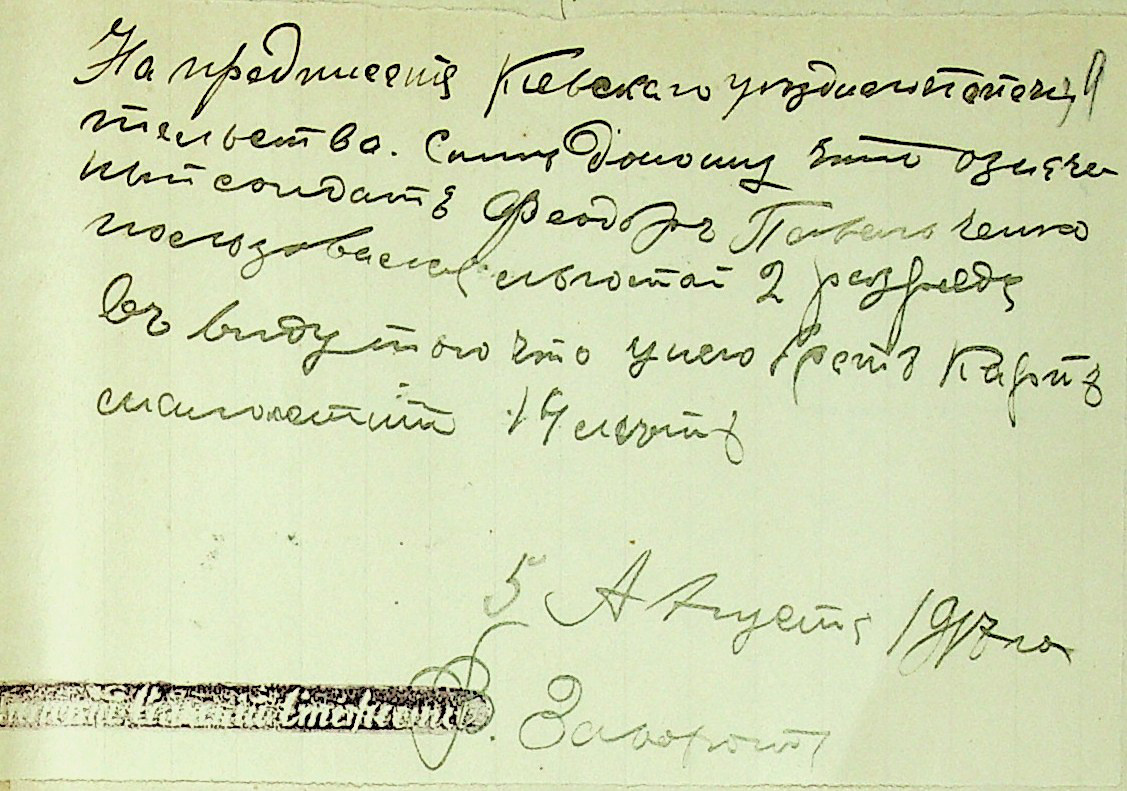 На предписаніе Кіевскаго уѣзднаго попечи
тельства. Симъ доношу что означен
ный солдатъ Феодоръ Павельченко
пользовался льготой 2 разряда
въ виду того что у него братъ Карпъ
малолетній 14 летъ
5 Августа 1917 го